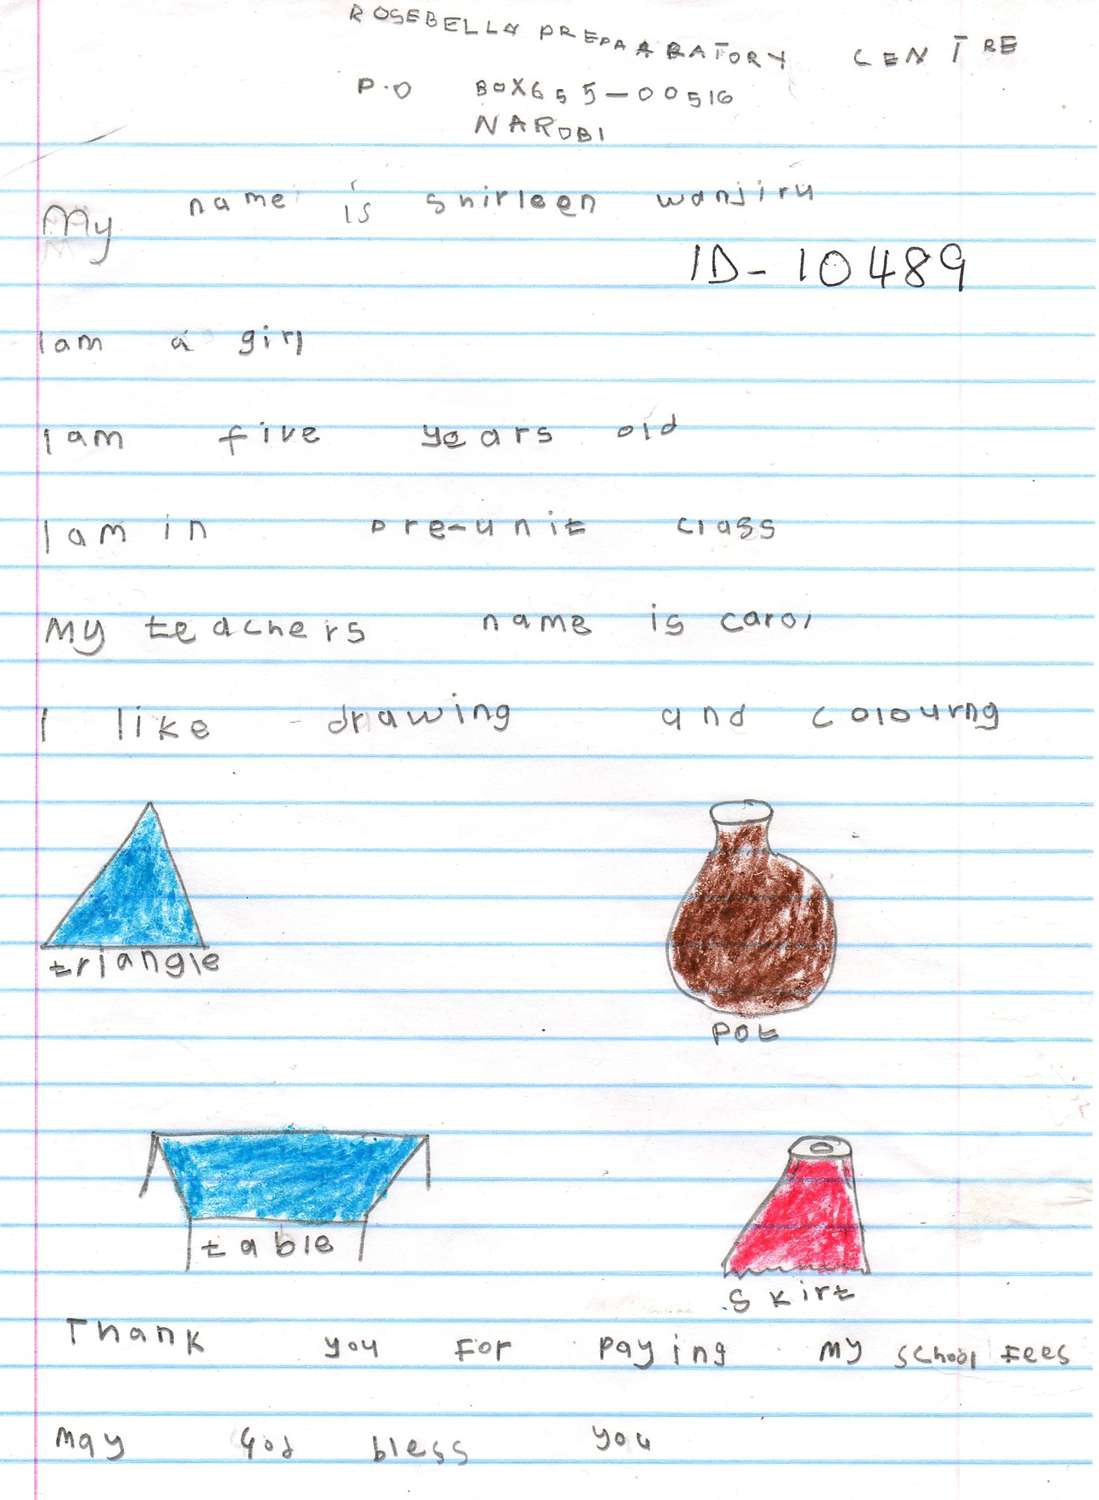 ROSEBELLA PREPAARATORY CENTRE
P.O BOX655-00516
NAROBI
My name is shirleen wanjiru
ID-10489
I am a girl
I am five years old
I am in pre-unit class
My teachers name is carol
I like drawing and colourng
triangle
pot
table
skirt
Thank you for paying my school fees
may God bless you